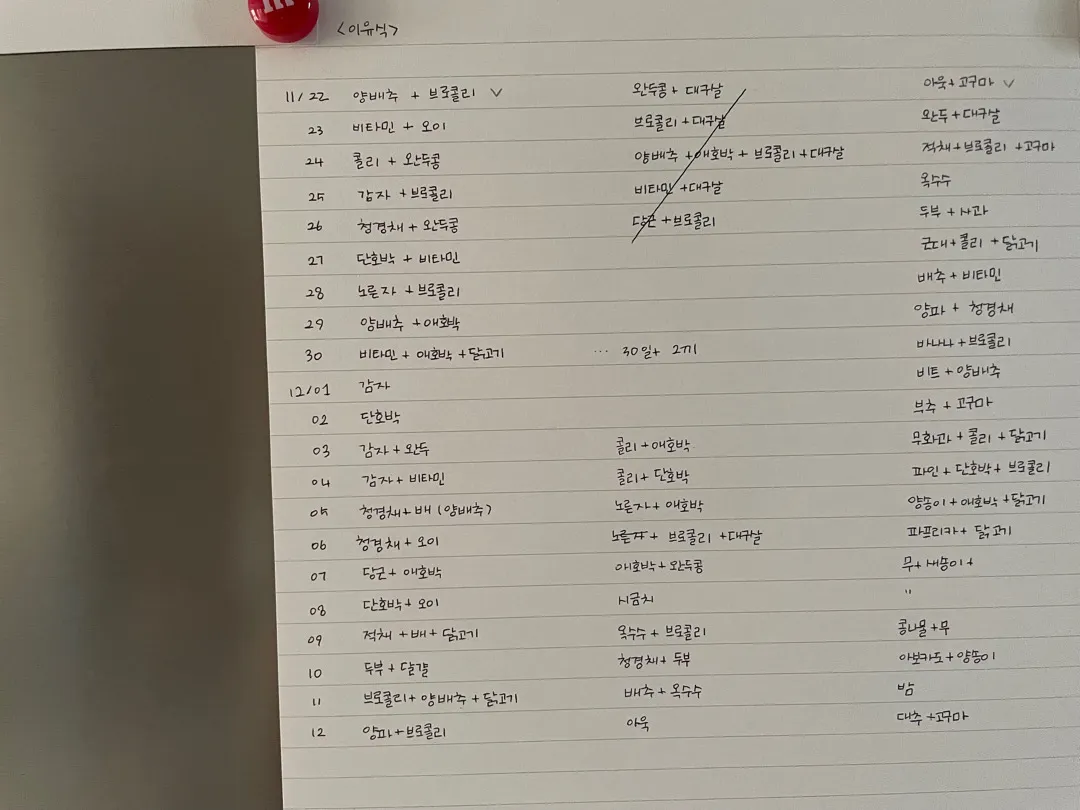 m
<이유식>
11/22 양배추 + 브로콜리 ✓ 완두콩 + 대구살 아욱 + 고구마 ✓
23 비타민 + 오이 브로콜리 + 대구살 완두 + 대구살
24 콜리 + 완두콩 양배추 + 애호박 + 브로콜리 + 대구살 적채 + 브로콜리 + 고구마
25 감자 + 브로콜리 비타민 + 대구살 옥수수
26 청경채 + 완두콩 당근 + 브로콜리 두부 + 사과
27 단호박 + 비타민 근대 + 콜리 + 닭고기
28 노른자 + 브로콜리 배추 + 비타민
29 양배추 + 애호박 양파 + 청경채
30 비타민 + 애호박 + 닭고기 ... 30일+ 2끼 바나나 + 브로콜리
12/01 감자 비트 + 양배추
02 단호박 부추 + 고구마
03 감자 + 완두 콜리 + 애호박 무화과 + 콜리 + 닭고기
04 감자 + 비타민 콜리 + 단호박 파인 + 단호박 + 브로콜리
05 청경채 + 배 (양배추) 노른자 + 애호박 양송이 + 애호박 + 닭고기
06 청경채 + 오이 노른자 + 브로콜리 + 대구살 파프리카 + 닭고기
07 당근 + 애호박 애호박 + 완두콩 무 + 새송이 +
08 단호박 + 오이 시금치 "
09 적채 + 배 + 닭고기 옥수수 + 브로콜리 콩나물 + 무
10 두부 + 달걀 청경채 + 두부 아보카도 + 양송이
11 브로콜리 + 양배추 + 닭고기 배추 + 옥수수 밤
12 양파 + 브로콜리 아욱 대추 + 고구마